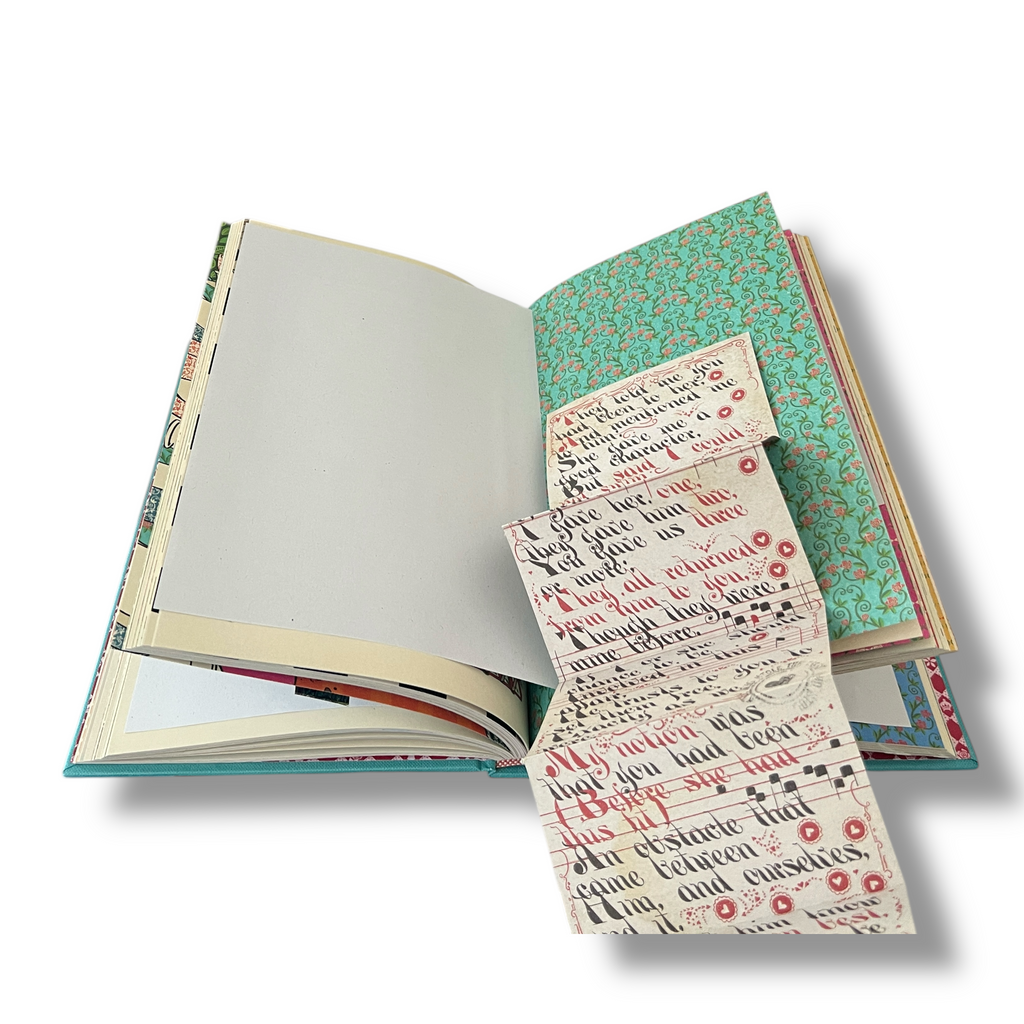 They told me you
had been to her,
him mentioned me
She gave me a
good character,
But said I could
I gave her one,
they gave him two,
You gave us three
or more;
They all returned
from him to you,
Though they were
mine before.
My notion was
that you had been
(Before she had
this fit)
An obstacle that
came between
Him, and ourselves,
and it.
him know